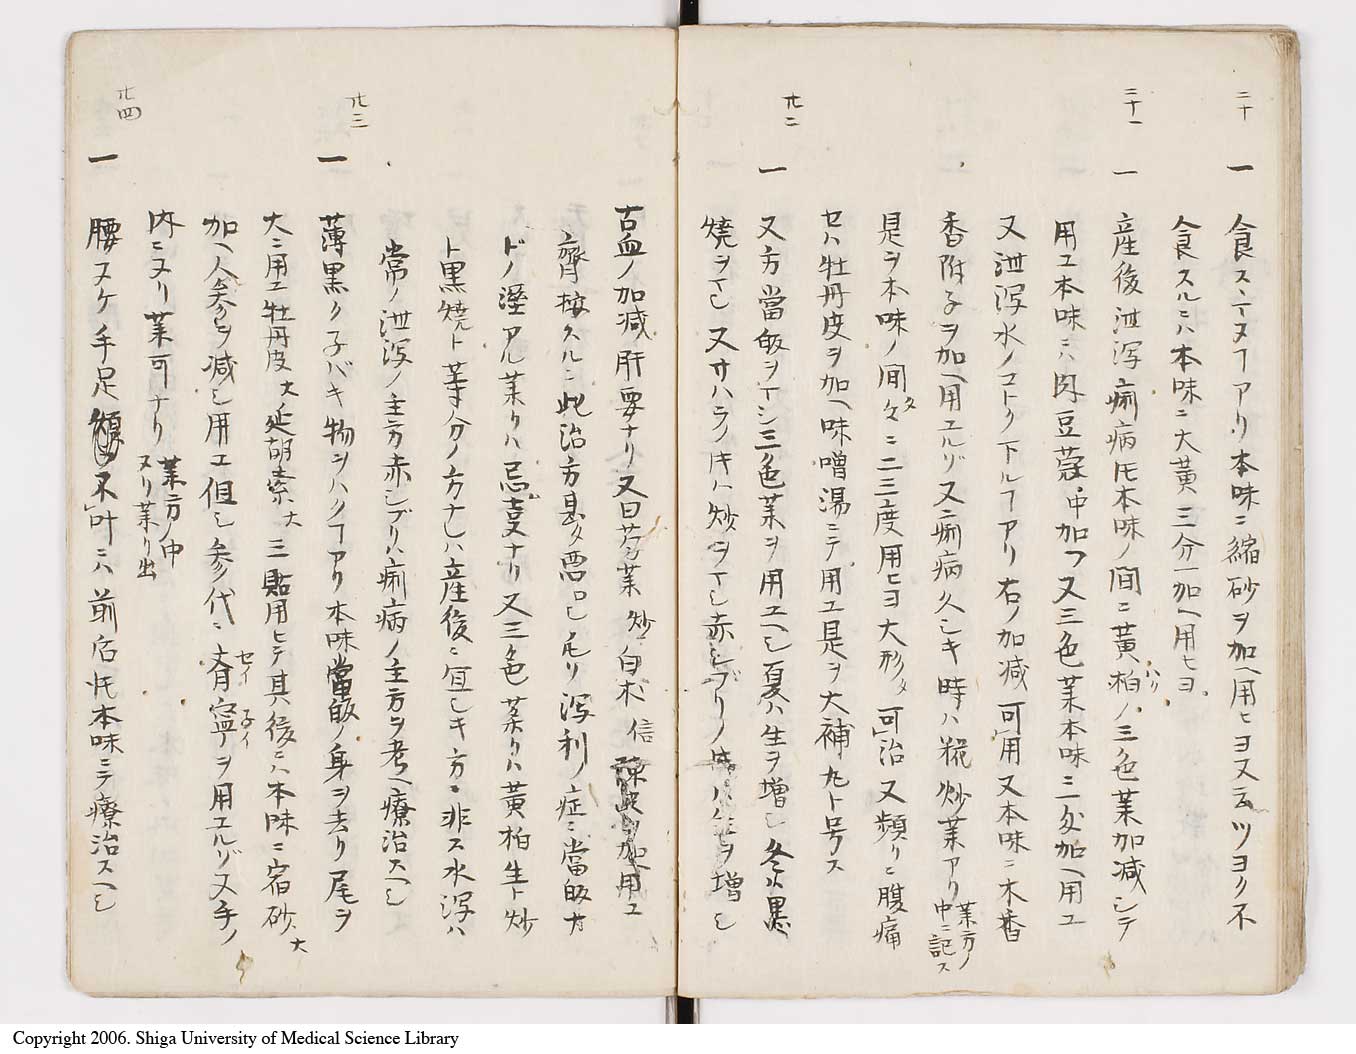 二十
一 食スヿヌフアリ本味ニ縮砂ヲ加ヘ用ヒヨ又云ツヨク不
食スルニハ本味ニ大黄三分一加ヘ用ヒヨ
二十一
一 産後泄瀉痢病ヒ本味ノ間ニ黄柏ノ三色薬加減シテ
用ユ本味ニハ肉豆蔲中加フ又三色薬本味ニ加ヘ用ユ
又泄瀉水ノコトク下ルフアリ右ノ加減可用又本味ニ木香
香附子ヲ加ヘ用ユルゾ又云痢病久シキ時ハ糀炒薬アリ 薬方ノ中ニ記ス
是ヲ本味ノ間々ニ二三度用ヒヨ大形可治又頻リニ腹痛
セハ牡丹皮ヲ加ヘ味噌湯ニテ用ユ是ヲ大補丸ト号ス
廿二
一 又方當皈ヲイシ三色薬ヲ用ユヘシ夏ハ生ヲ増シ冬ハ黒
焼ヲイシ又サハラノキハ炒ヲイシ赤シブリノ 生ヲ増シ
古血ノ加減肝要ナリ又曰 薬 炒 白朮 信 加用ユ
齊按スルニ此治方甚タ悪口シ 瀉利ノ症ニ當皈ナ
ドノ溼アル薬クハ忌支ナリ又三色薬クハ黄柏生ト炒
ト黒焼ト等分ノ方ナレハ産後ニ宜シキ方ニ非ス水瀉ハ
常ノ泄瀉ノ主方赤シブリハ痢病ノ主方ヲ考ヘ療治スヘシ
廿三
一 薄黒ク子バキ物ヲハクフアリ本味當皈ノ身ヲ去リ尾ヲ
大ニ用ユ牡丹皮大延胡索大三貼用ヒテ其後ニハ本味ニ宿砂大
加ヘ人参ヲ減シ用ユ但シ参ノ代ニ斉寧ヲ用ユルゾ又手ノ
セイ子イ
内ニヌリ薬可ナリ 薬方ノ中ヌリ薬リ出
廿四
一 腰ヌケ手足 不叶ニハ前后ヒ本味ニテ療治スヘシ
Copyright 2006. Shiga University of Medical Science Library